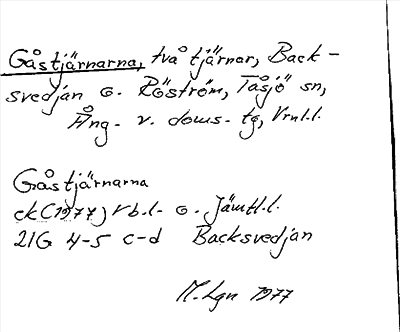 Gåstjärnarna, två tjärnar, Back-
svedjan o. Röström, Tåsjö sn,
Ång. v. doms. tg, Vrnl.l.
Gåstjärnarna
ek (1977) Vb.l. o. Jämtl.l.
21G 4-5 c-d Backsvedjan
M.Lgn 1977